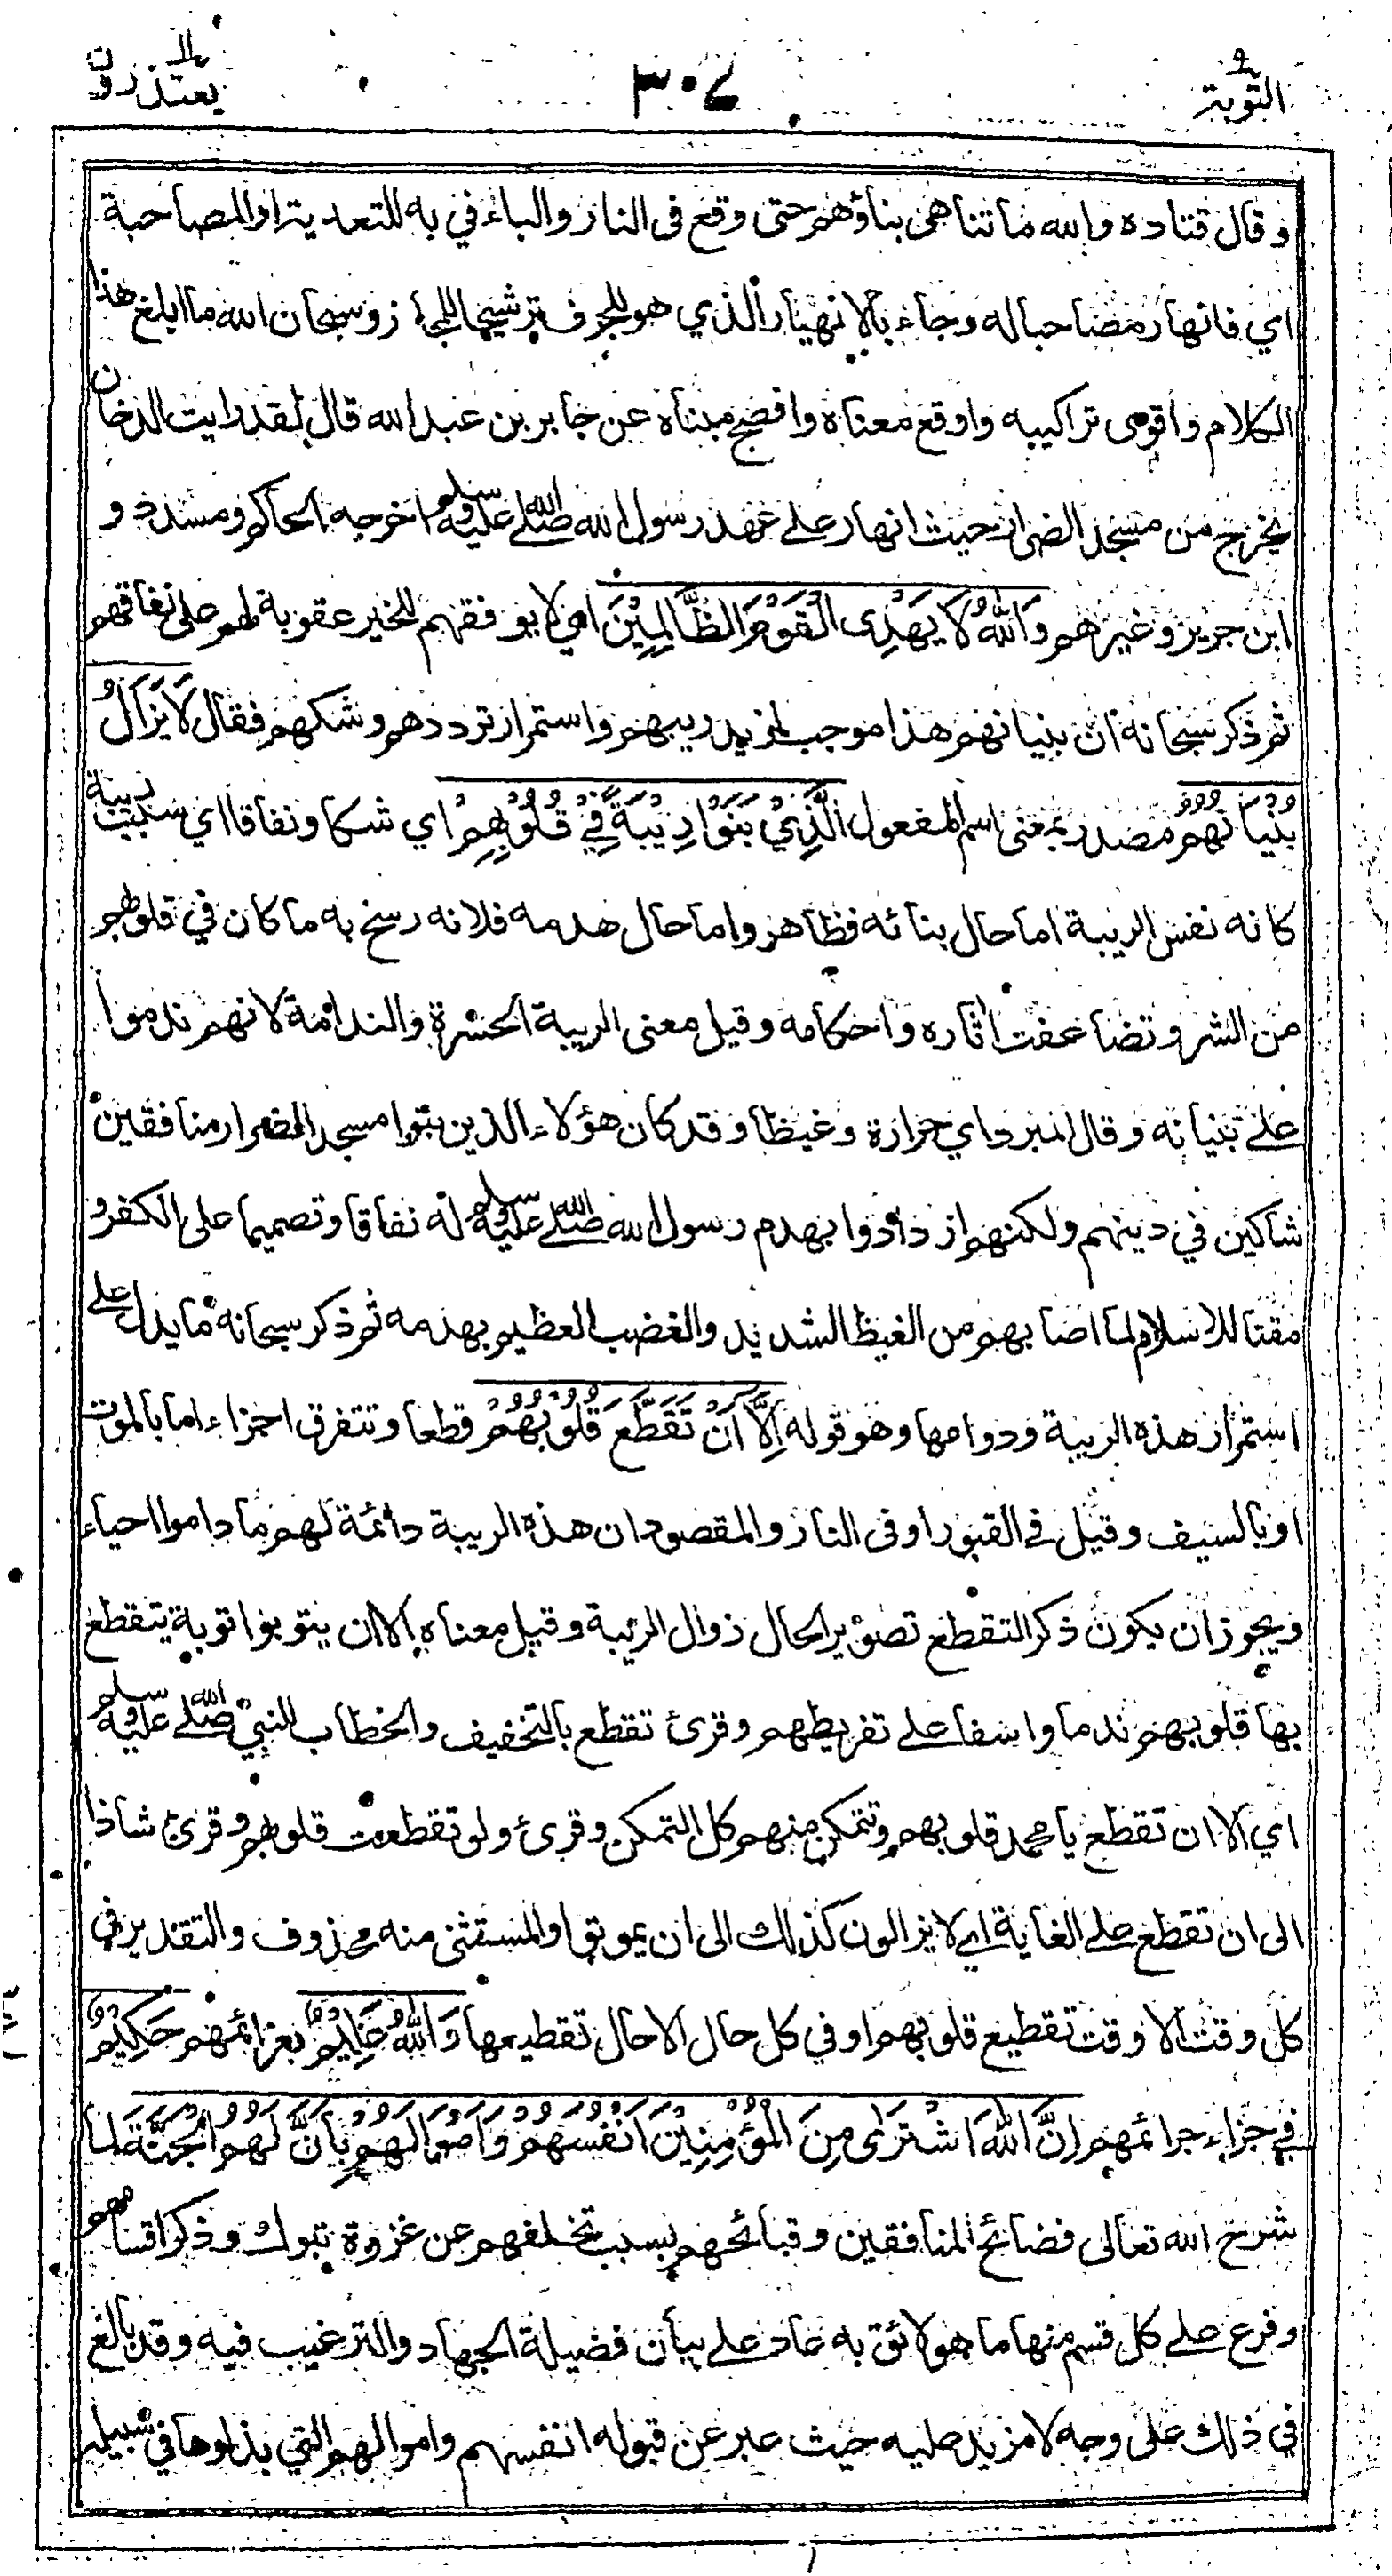 التوبة ٣٠٧ يعتذرون
وقال قتاده والله ما تناهى بناؤهم حتى وقع فى النار والباء في به للتعدية او للمصاحبة
اي فانهار مصاحبا له وجاء بالانهيار الذي هو للجرف ترشيحا للمجاز وسبحان الله ما ابلغ هذا
الكلام واقوى تراكيبه واوقع معناه وافصح مبناه عن جابر بن عبد الله قال لقد رايت الدخان
يخرج من مسجد الضرار حيث انهار على عهد رسول الله صلى الله عليه وسلم اخرجه الحاكم ومسدد و
ابن جرير وغيرهم وَاللهُ لَا يَهْدِى الْقَوْمَ الظَّالِمِيْنَ اي لا يوفقهم للخير عقوبة لهم على نفاقهم
ثم ذكر سبحانه ان بنيانهم هذا موجب لمزيد ريبهم واستمرار ترددهم وشكهم فقال لَا يَزَالُ
بُنْيَانُهُمُ مصدر بمعنى اسم المفعول الَّذِيْ بَنَوْا رِيْبَةً فِيْ قُلُوْبِهِمْ اي شكا ونفاقا اي سبب ريبة
كانه نفس الريبة اما حال بنائه فظاهر واما حال هدمه فلانه رسخ به ما كان في قلوبهم
من الشر وتضاعفت اثاره واحكامه وقيل معنى الريبة الحسرة والندامة لانهم ندموا
على بنيانه وقال المبرد اي حزازة وغيظا وقد كان هؤلاء الذين بنوا مسجد الضرار منافقين
شاكين في دينهم ولكنهم ازدادوا بهدم رسول الله صلى الله عليه وسلم له نفاقا وتصميما على الكفر و
مقتا للاسلام لما اصابهم من الغيظ الشديد والغضب العظيم بهدمه ثم ذكر سبحانه ما يدل على
استمرار هذه الريبة ودوامها وهو قوله اِلَّا اَنْ تَقَطَّعَ قُلُوْبُهُمْ قطعا وتتفرق اجزاء اما بالموت
او بالسيف وقيل في القبور او فى النار والمقصود ان هذه الريبة دائمة لهم ما داموا احياء
ويجوز ان يكون ذكر التقطع تصوير الحال زوال الريبة وقيل معناه الا ان يتوبوا توبة يتقطع
بها قلوبهم ندما واسفا على تفريطهم وقرئ تقطع بالتخفيف والخطاب للنبي صلى الله عليه وسلم
اي الا ان تقطع يا محمد قلوبهم وتتمكن منهم كل التمكن وقرئ ولو تقطعت قلوبهم وقرئ شاذا
الى ان تقطع على الغاية اي لا يزالون كذلك الى ان يموتوا والمستثنى منه محذوف والتقدير في
كل وقت الا وقت تقطيع قلوبهم او في كل حال الا حال تقطيعها وَاللهُ عَلِيْمٌ بعزائمهم حَكِيْمٌ
في جزاء جرائمهم اِنَّ اللهَ اشْتَرٰى مِنَ الْمُؤْمِنِيْنَ اَنْفُسَهُمْ وَاَمْوَالَهُمْ بِاَنَّ لَهُمُ الْجَنَّةَ لما
شرح الله تعالى فضائح المنافقين وقبائحهم بسبب تخلفهم عن غزوة تبوك وذكر اقسامهم
وفرع على كل قسم منها ما هو لائق به عاد على بيان فضيلة الجهاد والترغيب فيه وقد بالغ
في ذلك على وجه لا مزيد عليه حيث عبر عن قبوله انفسهم واموالهم التي بذلوها في سبيله